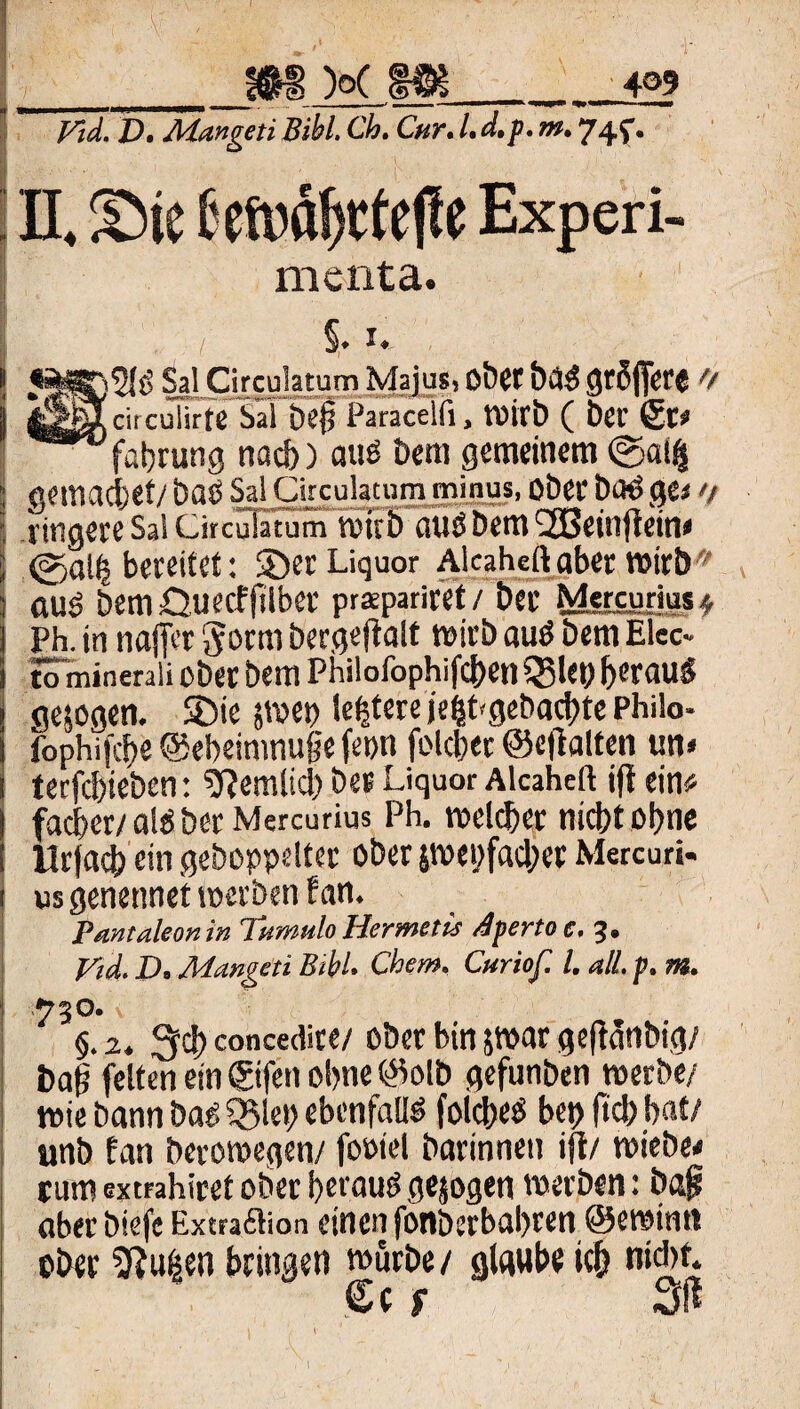 )o( 409
Vid. D. Mangeti Bibl. Ch. Cur. l. d. p. m. 745.
II. Die bewährteste Experi-
menta.
§. 1.
Das Sal Circulatum Majus, oder das grössere
circulirte Sal deß Paracelsi, wird ( der Er-
fahrung nach) aus dem gemeinem Saltz
gemachet/ das Sal Circulatum minus, oder das ge-
ringere Sal Circulatum wird aus dem Weinstein-
Saltz bereitet: Der Liquor Alcahest aber wird
aus dem Quecksilber præpariret/ der Mercurius
Ph. in nasser Form dergestalt wird aus dem Elec-
to minerali oder dem Philosophischen Bley heraus
gezogen. Die zwey letztere jetzt-gedachte Philo-
sophische Geheimnuße seyn solcher Gestalten un-
terschieden: Nemlich der Liquor Alcahest ist ein-
facher/ als der Mercurius Ph. welcher nicht ohne
Ursach ein gedoppelter oder zweyfacher Mercuri-
us genennet werden kan.
Pantaleon in Tumulo Hermetis Aperto c. 3.
Vid. D. Mangeti Bibl. Chem. Curios. l. all. p. m.
730.
§. 2. Ich concedire/ oder bin zwar geständig/
daß selten ein Eisen ohne Gold gefunden werde/
wie dann das Bley ebenfalls solches bey sich hat/
und kan derowegen/ soviel darinnen ist/ wiede-
rum extrahiret oder heraus gezogen werden: daß
aber diese Extraction einen sonderbahren Gewinn
oder Nutzen bringen würde/ glaube ich nicht.
Cc 5 Ist